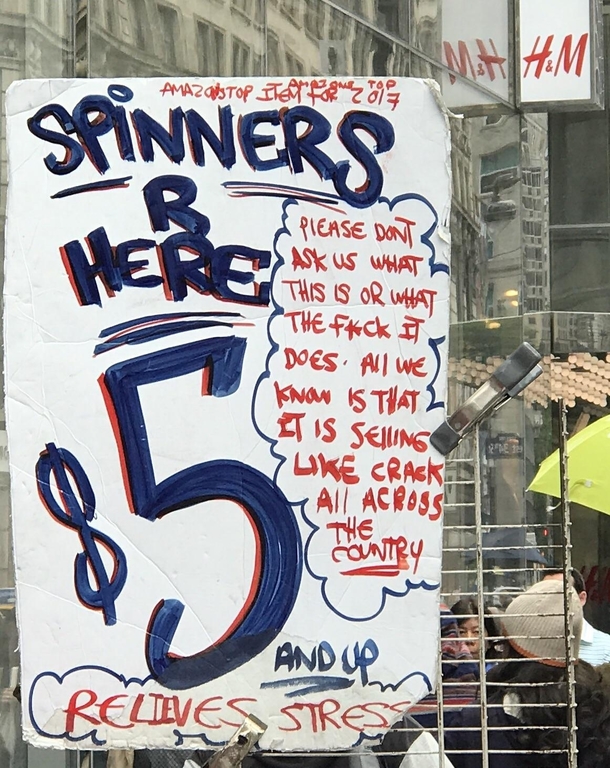 M&H
H&M
AMAZONS TOP ITEM FOR 2017
SPiNNERS
R
HERE
$5
AND UP
PlEASE DONT
ASK US WHAT
THIS IS OR WHAT
THE F*CK IT
DOES. All WE
KNOW IS THAT
IT IS SElliNG
LIKE CRACK
All ACROSS
THE
COUNTRY
RELIEVES STRESS